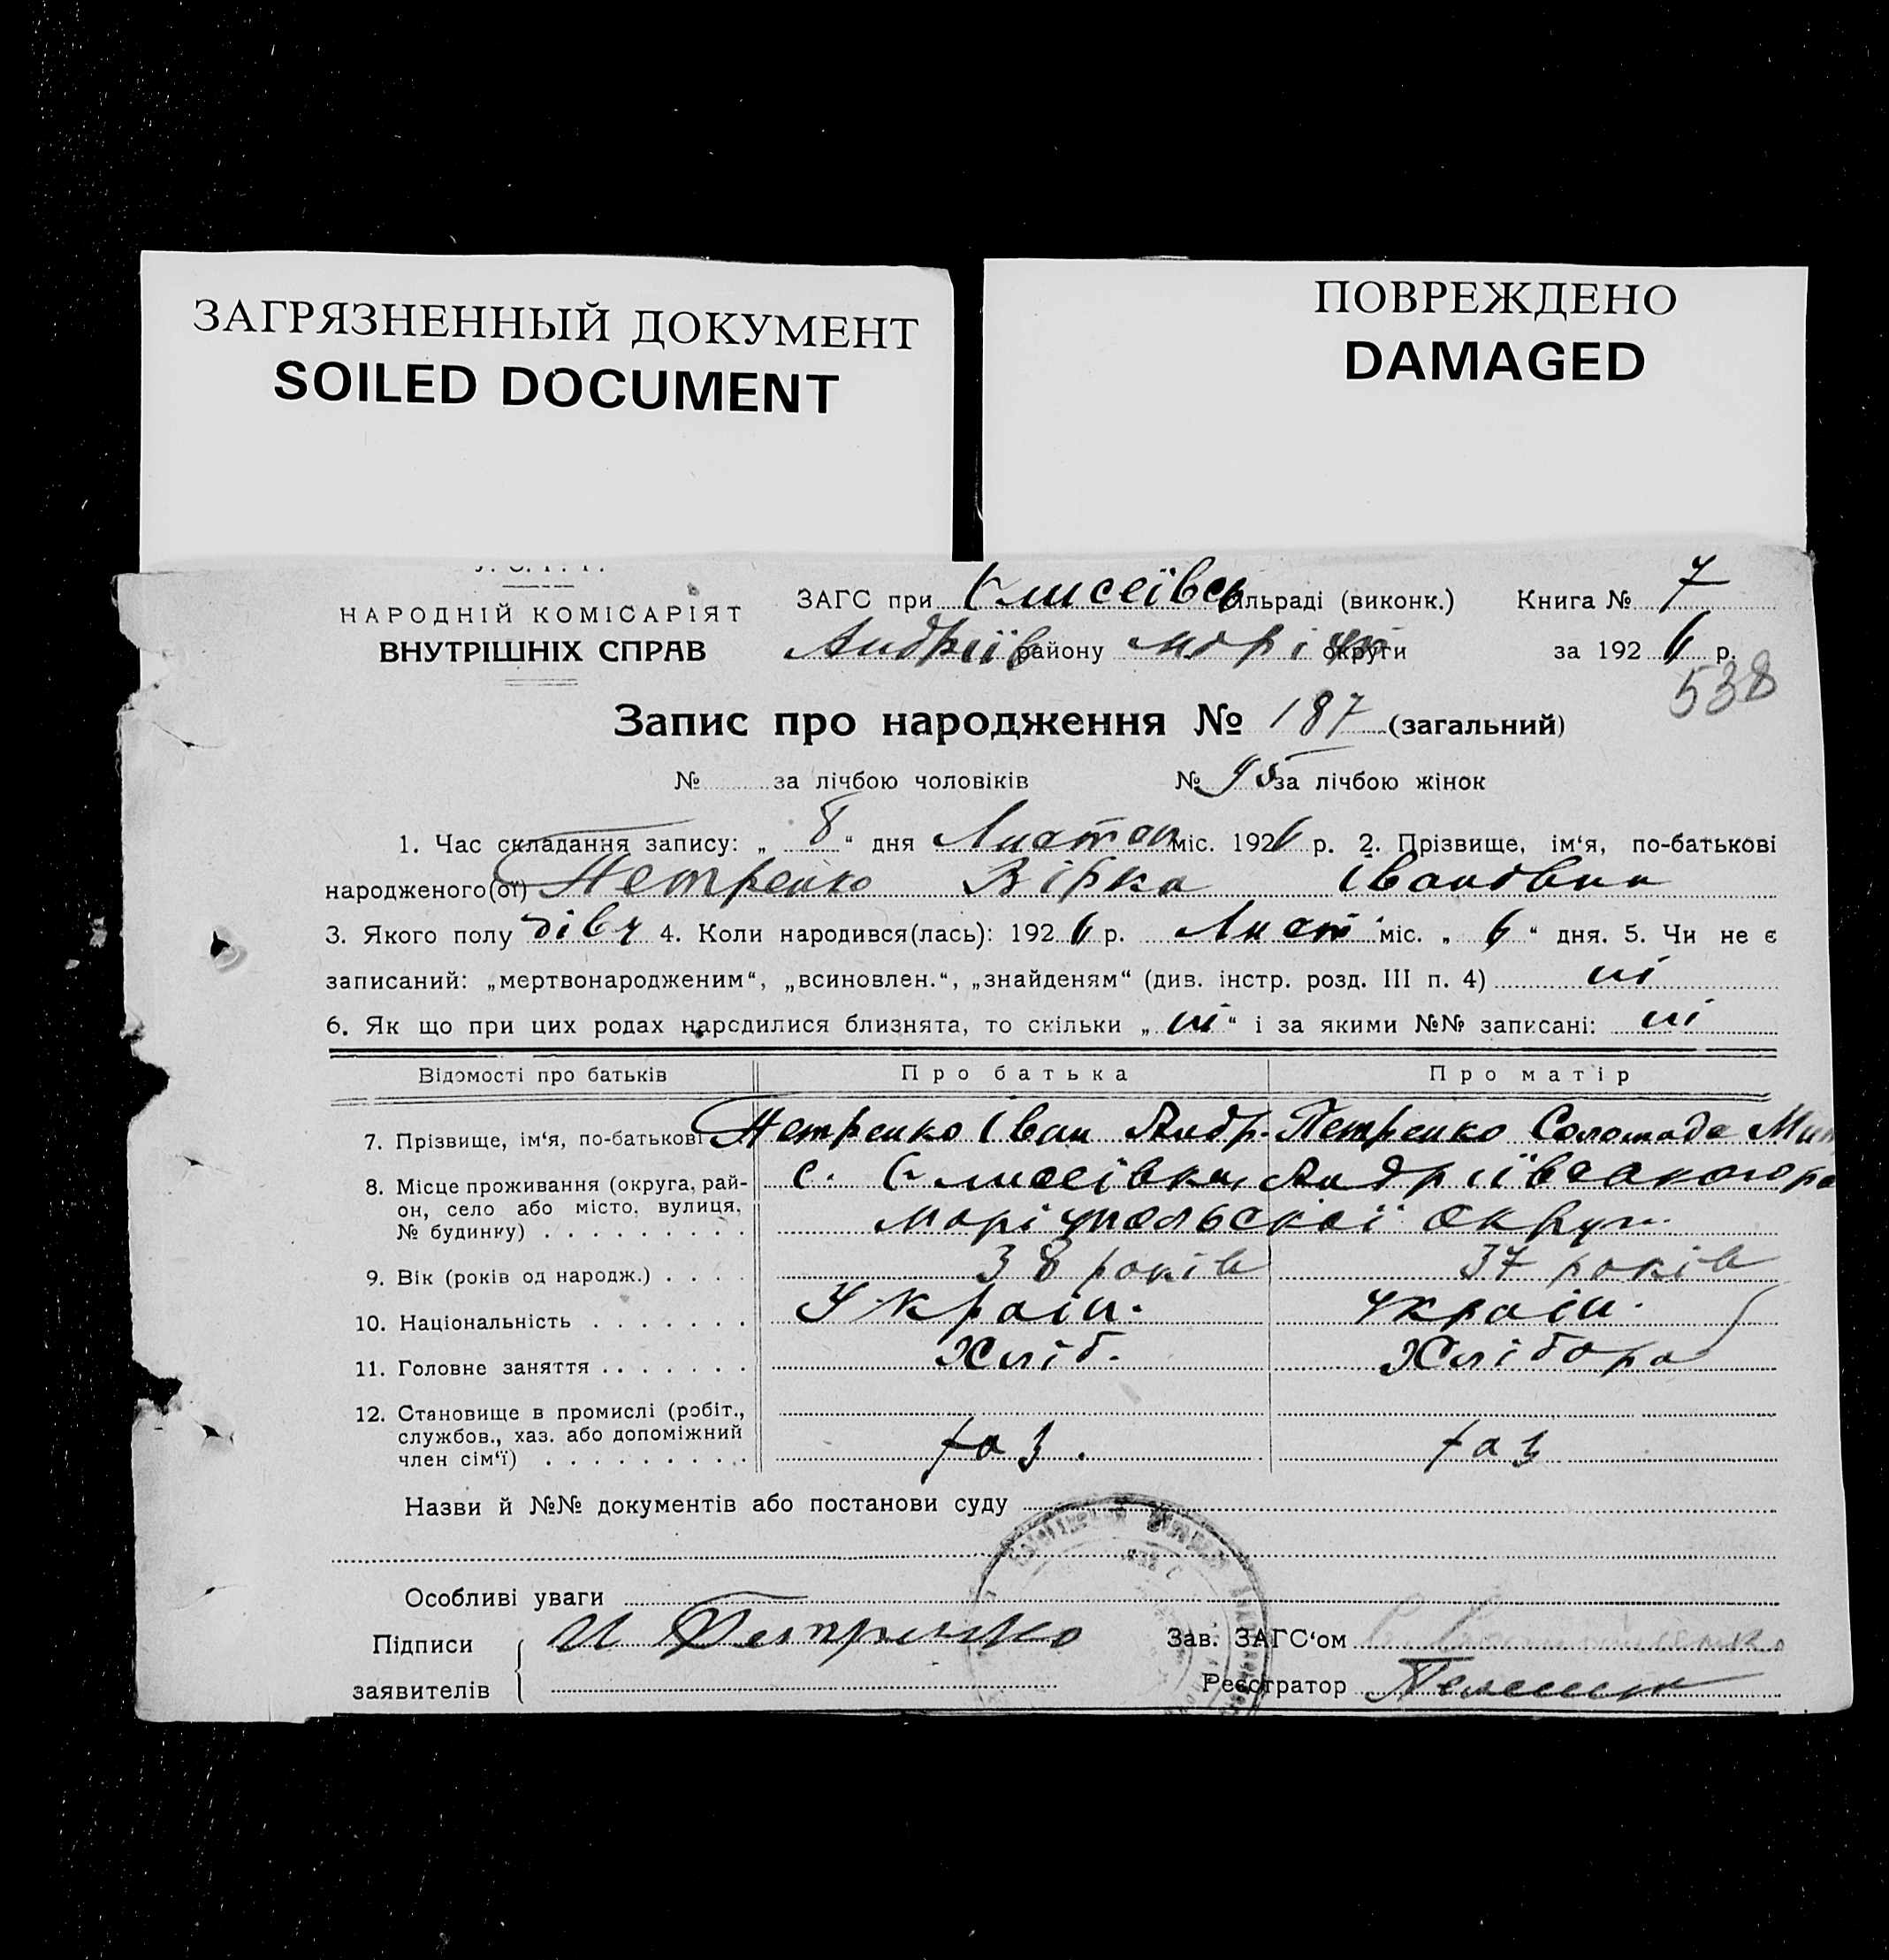 ЗАГРЯЗНЕННЫЙ ДОКУМЕНТ
SOILED DOCUMENT
ПОВРЕЖДЕНО
DAMAGED
НАРОДНІЙ КОМІСАРІЯТ
ВНУТРІШНІХ СПРАВ
ЗАГС при Єлисеївсь сільраді (виконк.) Книга № 7
Андріїв району округи за 192 6 р.
538
Запис про народження № 187 (загальний)
№ за лічбою чоловіків № 95 за лічбою жінок
1. Час складання запису: „ 8 “ дня Листоп міс. 192 6 р. 2. Прізвище, ім‘я, по-батькові
народженого(ої) Петренко Вірка Івановна
3. Якого полу дівч 4. Коли народився(лась): 192 6 р. Лист міс. „ 6 “ дня. 5. Чи не є
записаний: „мертвонародженим“, „всиновлен.“, „знайденям“ (див. інстр. розд. III п. 4) ні
6. Як що при цих родах народилися близнята, то скільки „ ні “ і за якими №№ записані: ні
Відомості про батьків Про батька Про матір
7. Прізвище, ім‘я, по-батькові Петренко Іван Андр. Петренко
8. Місце проживання (округа, рай-
он, село або місто, вулиця,
№ будинку) . . . . . . . . .
с. Єлисеївки, Андріївського ра
Маріупольської округи
9. Вік (років од народж.) . . . . 38 років 37 років
10. Національність . . . . . . . Україн. україн.
11. Головне заняття . . . . . . . Хліб. Хлібора
12. Становище в промислі (робіт.,
службов., хаз. або допоміжний
член сім‘ї) . . . . . . . . . хаз. хаз
Назви й №№ документів або постанови суду
Особливі уваги
Підписи И Петренко Зав. ЗАГС‘ом
заявителів Реєстратор